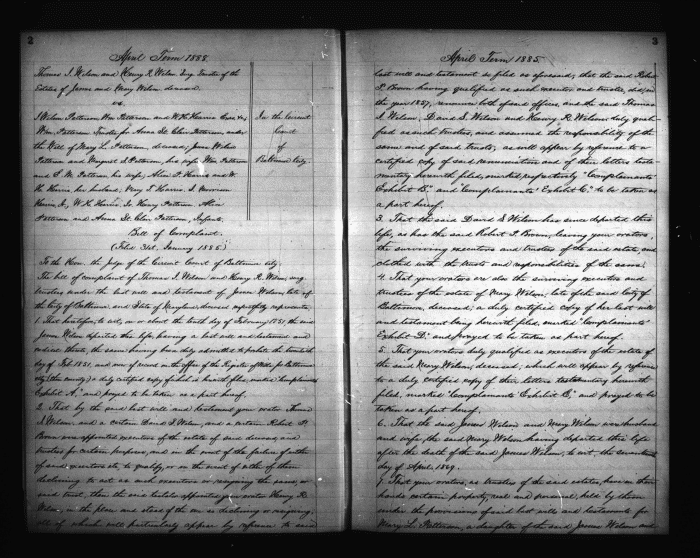 2
April Term 1885.
Thomas J. Wilson and Henry R. Wilson Surv. Trustees of the
Estates of James and Mary Wilson deceased.
vs.
J. Wilson Patterson Wm Patterson and W. H. Harris
Wm. Patterson Trustee for Anna St. Clair Patterson under
the Will of Mary L. Patterson, deceased, James Wilson
Patterson and Margaret S. Patterson, his wife, Wm Patterson
and C. M. Patterson his wife; Alice P. Harris and W.
H. Harris, her husband; Mary P. Harris, J. Morrison
Harris, Jr., W. H. Harris, Jr. Henry Patterson, Alice
Patterson and Anna St. Clair Patterson, Infants.
In the Circuit
Court
of
Baltimore City.
Bill of Complaint.
(Filed 31st. January 1885)
To the Hon. the Judge of the Circuit Court of Baltimore City:
The bill of complaint of Thomas J. Wilson and Henry R. Wilson, surv.
trustees under the last will and testament of James Wilson, late of
the City of Baltimore, and State of Maryland deceased respectfully represents,
1. That heretofore, to wit, on or about the tenth day of February 1851, the said
James Wilson departed this life, having a last will and testament and
codicil thereto, the same having been duly admitted to probate the twentieth
day of Feb 1851, and now of record in the office of the Register of Wills for Baltimore
city (then county) a duly certified copy of which is herewith filed, marked "Complainants'
Exhibit A," and prayed to be taken as a part hereof.
2. That by the said last will and testament your orator Thomas
J. Wilson, and a certain David S. Wilson, and a certain Robert P.
Brown were appointed executors of the estate of said deceased and
trustees for certain purposes, and in the event of the failure of either
of said executors etc. to qualify, or in the event of either of them
declining to act as such executors or resigning the same, or
said trust, then the said testator appointed your orator Henry R.
Wilson, in the place and stead of the one so declining or resigning,
all of which will particularly appear by reference to said
3
April Term 1885.
last will and testament so filed as aforesaid; that the said Robert
P. Brown having qualified as such executor and trustee, did, in
the year 1857, renounce both of said offices, and the said Thomas
J. Wilson, David S. Wilson and Henry R. Wilson duly quali-
fied as such trustees, and assumed the responsibility of the
same and of said trusts, as will appear by reference to a
certified copy of said renunciation and of their letters testa-
mentary herewith filed, marked respectively "Complainants'
Exhibit B," and "Complainants' Exhibit C," to be taken as
a part hereof.
3. That the said David S. Wilson has since departed this
life, as has the said Robert P. Brown, leaving your orators,
the surviving executors and trustees of the said estate, and
clothed with the trusts and responsibilities of the same.
4. That your orators are also the surviving executors and
trustees of the estate of Mary Wilson, late of the said City of
Baltimore, deceased; a duly certified copy of her last will
and testament being herewith filed, marked "Complainants'
Exhibit D," and prayed to be taken as part hereof.
5. That your orators duly qualified as executors of the estate of
the said Mary Wilson, deceased, which will appear by reference
to a duly certified copy of their letters testamentary herewith
filed, marked "Complainants' Exhibit E," and prayed to be
taken as a part hereof.
6. That the said James Wilson and Mary Wilson were husband
and wife, the said Mary Wilson having departed this life
after the death of the said James Wilson, to wit, the seventeenth
day of April, 1869.
7. That your orators, as trustees of the said estates, have in their
hands certain property, real and personal, held by them
under the provisions of said last wills and testaments for
Mary L. Patterson, a daughter of the said James Wilson and